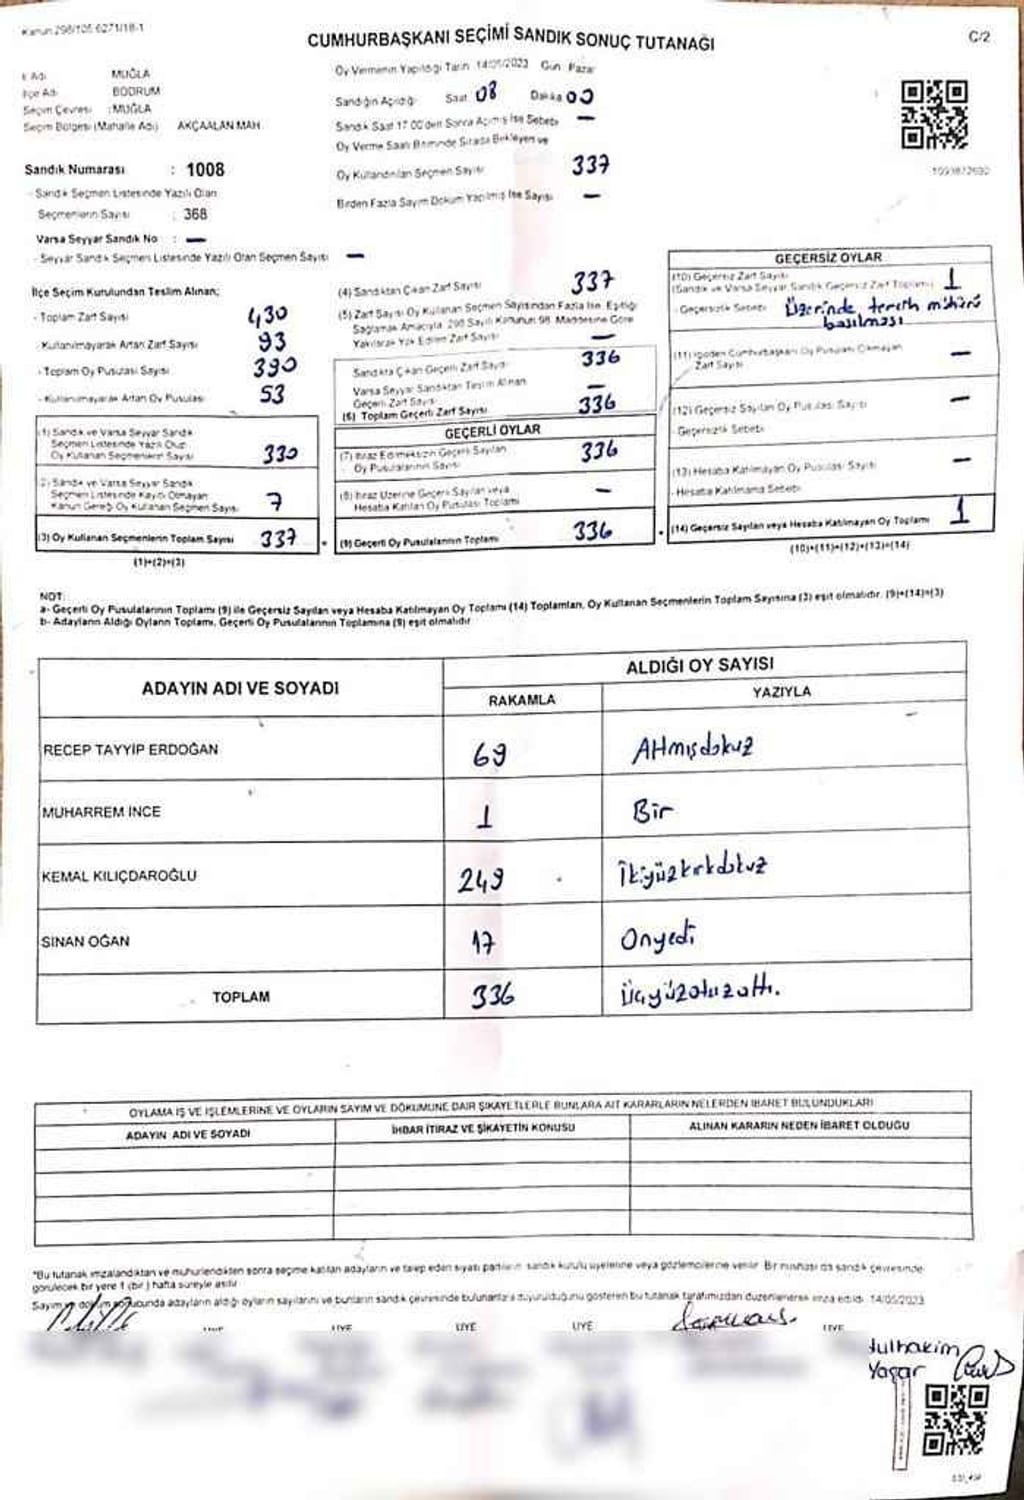 Kanun 298/105 6271/18-1
CUMHURBAŞKANI SEÇİMİ SANDIK SONUÇ TUTANAĞI
C/2
İl Adı MUĞLA
İlçe Adı BODRUM
Seçim Çevresi : MUĞLA
Seçim Bölgesi (Mahalle Adı) AKÇAALAN MAH
Oy Vermenin Yapıldığı Tarih 14/05/2023 Gün Pazar
Sandığın Açıldığı Saat 08 Dakika 00
Sandık Saat 17.00'den Sonra Açılmış İse Sebebi —
Oy Verme Saati Bitiminde Sırada Bekleyen ve
Oy Kullandırılan Seçmen Sayısı 337
Birden Fazla Sayım Döküm Yapılmış İse Sayısı —
Sandık Numarası : 1008
- Sandık Seçmen Listesinde Yazılı Olan
Seçmenlerin Sayısı : 368
Varsa Seyyar Sandık No : —
- Seyyar Sandık Seçmen Listesinde Yazılı Olan Seçmen Sayısı —
İlçe Seçim Kurulundan Teslim Alınan;
- Toplam Zarf Sayısı 430
- Kullanılmayarak Artan Zarf Sayısı 93
- Toplam Oy Pusulası Sayısı 390
- Kullanılmayarak Artan Oy Pusulası 53
(1) Sandık ve Varsa Seyyar Sandık
Seçmen Listesinde Yazılı Olup
Oy Kullanan Seçmenlerin Sayısı 330
(2) Sandık ve Varsa Seyyar Sandık
Seçmen Listesinde Kayıtlı Olmayan
Kanun Gereği Oy Kullanan Seçmen Sayısı 7
(3) Oy Kullanan Seçmenlerin Toplam Sayısı 337
(1)+(2)=(3)
(4) Sandıktan Çıkan Zarf Sayısı 337
(5) Zarf Sayısı Oy Kullanan Seçmen Sayısından Fazla İse, Eşitliği
Sağlamak Amacıyla, 298 Sayılı Kanunun 98. Maddesine Göre
Yakılarak Yok Edilen Zarf Sayısı —
Sandıkta Çıkan Geçerli Zarf Sayısı 336
Varsa Seyyar Sandıktan Teslim Alınan
Geçerli Zarf Sayısı —
(6) Toplam Geçerli Zarf Sayısı 336
GEÇERLİ OYLAR
(7) İtiraz Edilmeksizin Geçerli Sayılan
Oy Pusulalarının Sayısı 336
(8) İtiraz Üzerine Geçerli Sayılan veya
Hesaba Katılan Oy Pusulası Toplamı —
(9) Geçerli Oy Pusulalarının Toplamı 336
GEÇERSİZ OYLAR
(10) Geçersiz Zarf Sayısı
(Sandık ve Varsa Seyyar Sandık Geçersiz Zarf Toplamı) 1
- Geçersizlik Sebebi Üzerinde tercih mührü
basılması
(11) İçinden Cumhurbaşkanı Oy Pusulası Çıkmayan
Zarf Sayısı —
(12) Geçersiz Sayılan Oy Pusulası Sayısı —
- Geçersizlik Sebebi
(13) Hesaba Katılmayan Oy Pusulası Sayısı —
- Hesaba Katılmama Sebebi
(14) Geçersiz Sayılan veya Hesaba Katılmayan Oy Toplamı 1
(10)+(11)+(12)+(13)=(14)
NOT:
a- Geçerli Oy Pusulalarının Toplamı (9) ile Geçersiz Sayılan veya Hesaba Katılmayan Oy Toplamı (14) Toplamları, Oy Kullanan Seçmenlerin Toplam Sayısına (3) eşit olmalıdır. (9)+(14)=(3)
b- Adayların Aldığı Oyların Toplamı, Geçerli Oy Pusulalarının Toplamına (9) eşit olmalıdır
ADAYIN ADI VE SOYADI
ALDIĞI OY SAYISI
RAKAMLA YAZIYLA
RECEP TAYYİP ERDOĞAN 69 Altmışdokuz
MUHARREM İNCE 1 Bir
KEMAL KILIÇDAROĞLU 249 İkiyüzkırkdokuz
SİNAN OĞAN 17 Onyedi
TOPLAM 336 Üçyüzotuzaltı.
OYLAMA İŞ VE İŞLEMLERİNE VE OYLARIN SAYIM VE DÖKÜMÜNE DAİR ŞİKAYETLERLE BUNLARA AİT KARARLARIN NELERDEN İBARET BULUNDUKLARI
ADAYIN ADI VE SOYADI İHBAR İTİRAZ VE ŞİKAYETİN KONUSU ALINAN KARARIN NEDEN İBARET OLDUĞU
*Bu tutanak imzalandıktan ve mühürlendikten sonra seçime katılan adayların ve talep eden siyasi partilerin sandık kurulu üyelerine veya gözlemcilerine verilir. Bir nüshası da sandık çevresinde
görülecek bir yere 1 (bir) hafta süreyle asılır
Sayım ve döküm sonucunda adayların aldığı oyların sayılarını ve bunların sandık çevresinde bulunanlara duyurulduğunu gösteren bu tutanak tarafımızdan düzenlenerek imza edildi. 14/05/2023
ÜYE ÜYE ÜYE ÜYE
dulhakim
Yaşar